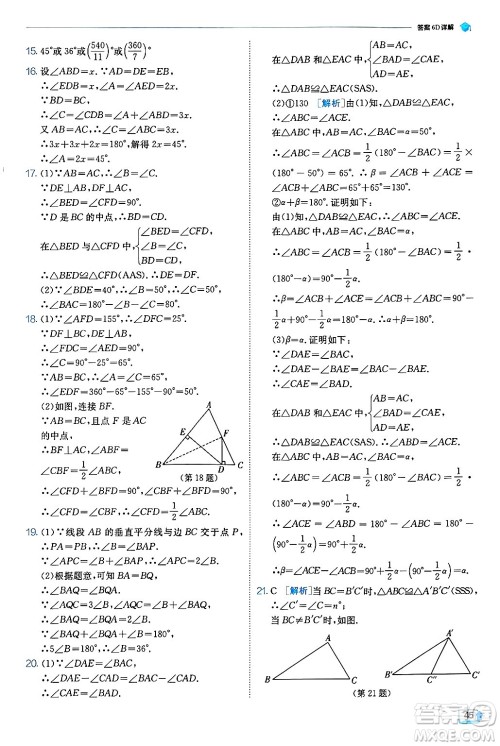 答案6D详解
15. 45°或36°或(540/11)°或(360/7)°
16. 设∠ABD=x.∵AD=DE=BE,
∴∠DEB=x,∴∠A=∠AED=2x.
∵BD=BC,
∴∠C=∠BDC=∠A+∠ABD=3x.
又AB=AC,∴∠ABC=∠C=3x.
∴3x+3x+2x=180°,解得x=22.5°.
∴∠A=2x=45°.
17. (1)∵AB=AC,∴∠B=∠C.
∵DE⊥AB,DF⊥AC,
∴∠BED=∠CFD=90°.
∵D是BC的中点,∴BD=CD.
在△BED与△CFD中,{∠BED=∠CFD, ∠B=∠C, BD=CD,
∴△BED≌△CFD(AAS).∴DE=DF.
(2)∵∠BDE=40°,∴∠B=50°.∴∠C=50°.
∴∠BAC=180°-50°-50°=80°.
18. (1)∵∠AFD=155°,∴∠DFC=25°.
∵DF⊥BC,DE⊥AB,
∴∠FDC=∠AED=90°,
∴∠C=90°-25°=65°.
∵AB=BC,∴∠A=∠C=65°.
∴∠EDF=360°-65°-155°-90°=50°.
(2)如图,连接BF.
∵AB=BC,且点F是AC
的中点,
∴BF⊥AC,∠ABF=
∠CBF=1/2∠ABC.
(第18题)
∴∠CFD+∠BFD=90°,∠CBF+∠BFD=90°.
∴∠CFD=∠CBF.∴∠CFD=1/2∠ABC.
19. (1)∵线段AB的垂直平分线与边BC交于点P,
∴PA=PB.∴∠B=∠BAP.
∵∠APC=∠B+∠BAP,∴∠APC=2∠B.
(2)根据题意,可知BA=BQ,
∴∠BAQ=∠BQA.
∵∠AQC=3∠B,∠AQC=∠B+∠BAQ,
∴∠BQA=∠BAQ=2∠B.
∵∠BAQ+∠BQA+∠B=180°,
∴5∠B=180°.∴∠B=36°.
20. (1)∵∠DAE=∠BAC,
∴∠DAE-∠BAE=∠BAC-∠BAE.
∴∠EAC=∠BAD.
在△DAB和△EAC中,{AB=AC, ∠BAD=∠EAC, AD=AE,
∴△DAB≌△EAC(SAS).
(2)①130 [解析]由(1)知,△DAB≌△EAC,
∴∠ABD=∠ACB.
在△ABC中,AB=AC,∠BAC=50°,
∴∠ABC=∠ACB=1/2(180°-∠BAC)=1/2
(180°-50°)=65°.∴∠ABD=65°.
∴∠DBC=∠ABD+∠ABC=65°+65°=130°.
②α+β=180°. 证明如下:
由(1)知,△DAB≌△EAC,∴∠ABD=∠ACB.
在△ABC中,AB=AC,∠BAC=α,
∴∠ABC=∠ACB=1/2(180°-∠BAC)=1/2
(180°-α)=90°-1/2α.∴∠ABD=90°-1/2α.
∴β=∠ABD+∠ABC=90°-1/2α+90°-1/2α
=180°-α.∴α+β=180°.
(3)α=β. 证明如下:
∵∠DAE=∠BAC,
∴∠DAE+∠BAE=∠BAC+∠BAE.
∴∠EAC=∠BAD.
在△DAB和△EAC中,{AB=AC, ∠BAD=∠EAC, AD=AE,
∴△DAB≌△EAC(SAS).∴∠ABD=∠ACE.
在△ABC中,AB=AC,∠BAC=α,
∴∠ABC=∠ACB=1/2(180°-∠BAC)=1/2
(180°-α)=90°-1/2α.
∴∠ABD=∠ACE=180°-∠ACB=180°-
(90°-1/2α)=90°+1/2α.
∴β=∠ABD-∠ABC=90°+1/2α-(90°-1/2α)
=α.∴α=β.
21. C [解析]当BC=B'C'时,△ABC≌△A'B'C'(SSS),
∴∠C'=∠C=n°;
当BC≠B'C'时,如图.
A'
B' C" C'
(第21题)
45